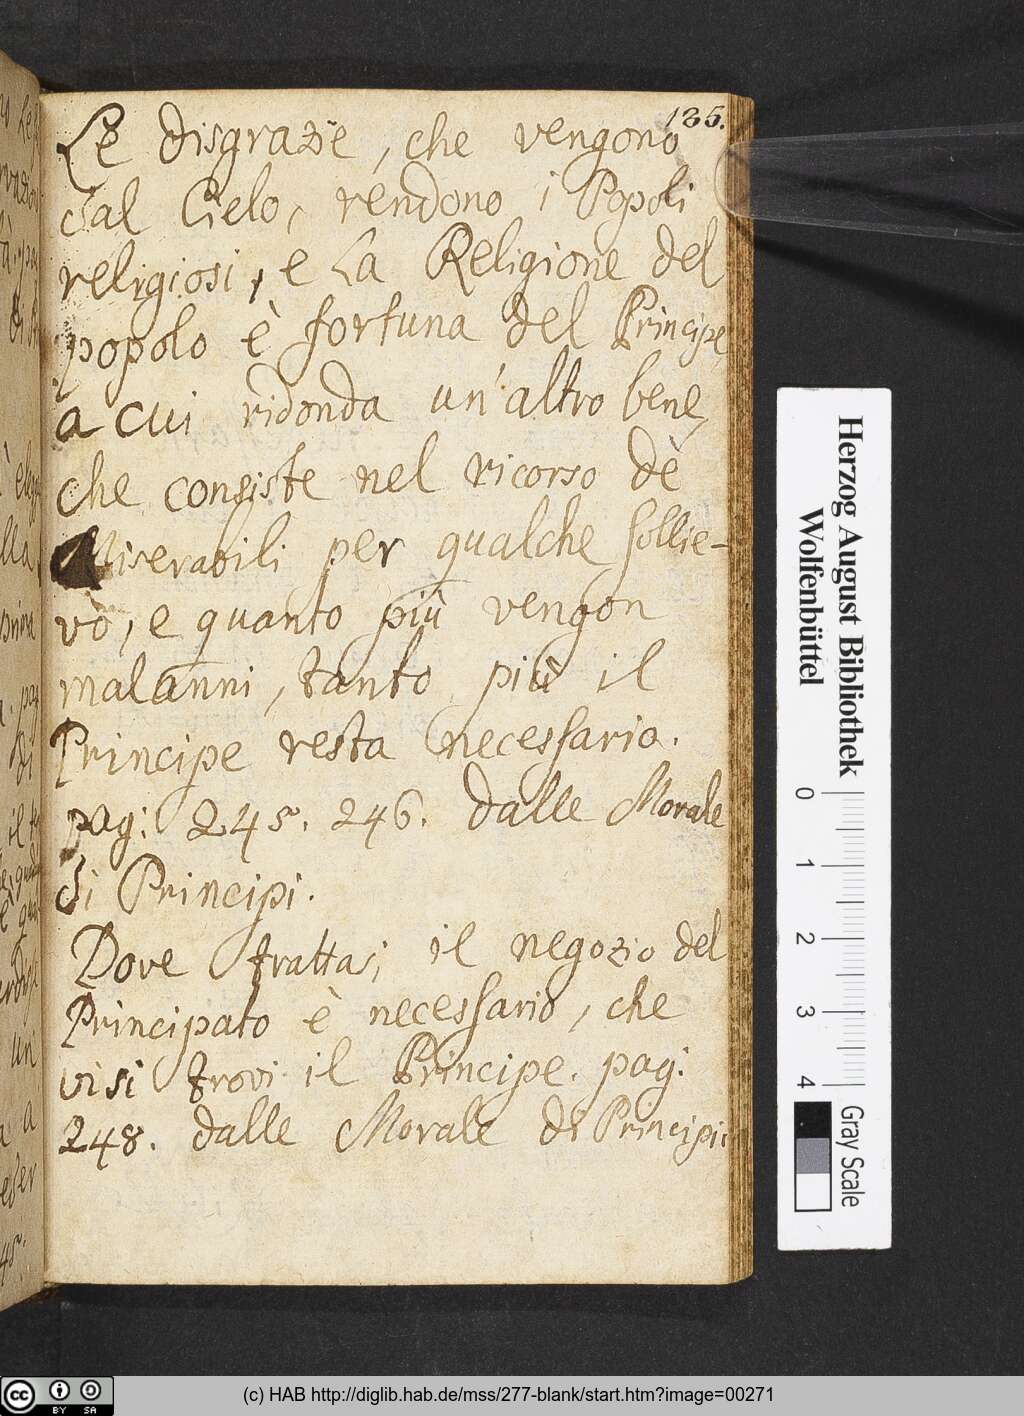 135.
Le disgrazie, che vengono
dal Cielo, rendono i Popoli
religiosi, e La Religione del
popolo è fortuna del Principe,
a cui ridonda un'altro bene,
che consiste nel ricorso dè
Miserabili per qualche sollie-
vo, e quanto più vengon
malanni, tanto più il
Principe resta necessario.
pag: 245. 246. dalle Morale
di Principi.
Dove trattasi il negozio del
Principato è necessario, che
visi trovi il Principe. pag:
248. dalle Morale di Principi:
Herzog August Bibliothek
Wolfenbüttel
0 1 2 3 4
Gray Scale
cc BY SA
(c) HAB http://diglib.hab.de/mss/277-blank/start.htm?image=00271